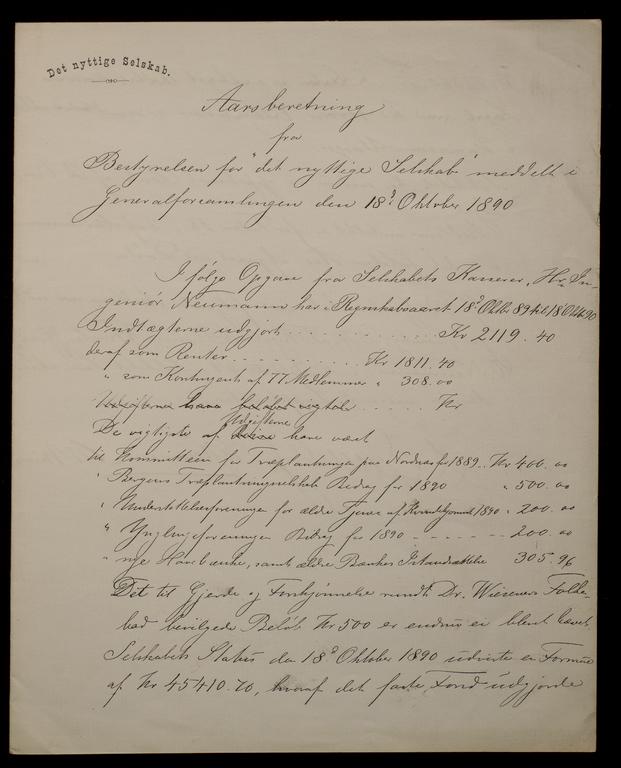 Det nyttige Selskab.
Aarsberetning
fra
Bestyrelsen for "det nyttige Selskab" meddelt i
Generalforsamlingen den 18d Oktober 1890
Ifølge Opgave fra Selskabets Kasserer, Hr. In-
geniør Neumann har i Regnskabsaaret 18d Oktbr 89 til 18 Oktb 90
Indtægterne udgjort . . . . . . . . . . Kr 2119. 40
deraf som Renter . . . . . . . . . . Kr 1811. 40
" som Kontingent af 77 Medlemmer " 308. 00
Udgifterne have beløbet sig til . . . . . Kr
De vigtigste af disse Udgifterne have været
til Kommitteen for Træplantninger paa Nordnæs for 1889 . . Kr 400. 00
" Bergens Træplantningsselskab Bidrag for 1890 " 500. 00
" Understøttelsesforeningen for ældre Tjenere af 1890 " 200. 00
" Ynglingeforeningen Bidrag for 1890 - - - - - - 200. 00
" nye Havebænke, samt ældre Bænkes Istandsættelse 305. 96
Det til Gjerde og Forskjønnelse rundt Dr. Wieseners Folke-
bad bevilgede Beløb Kr 500 er endnu ei blevet hævet.
Selskabets Status den 18d Oktober 1890 udviste en Formue
af Kr 45410. 70, hvoraf det faste Fond udgjorde